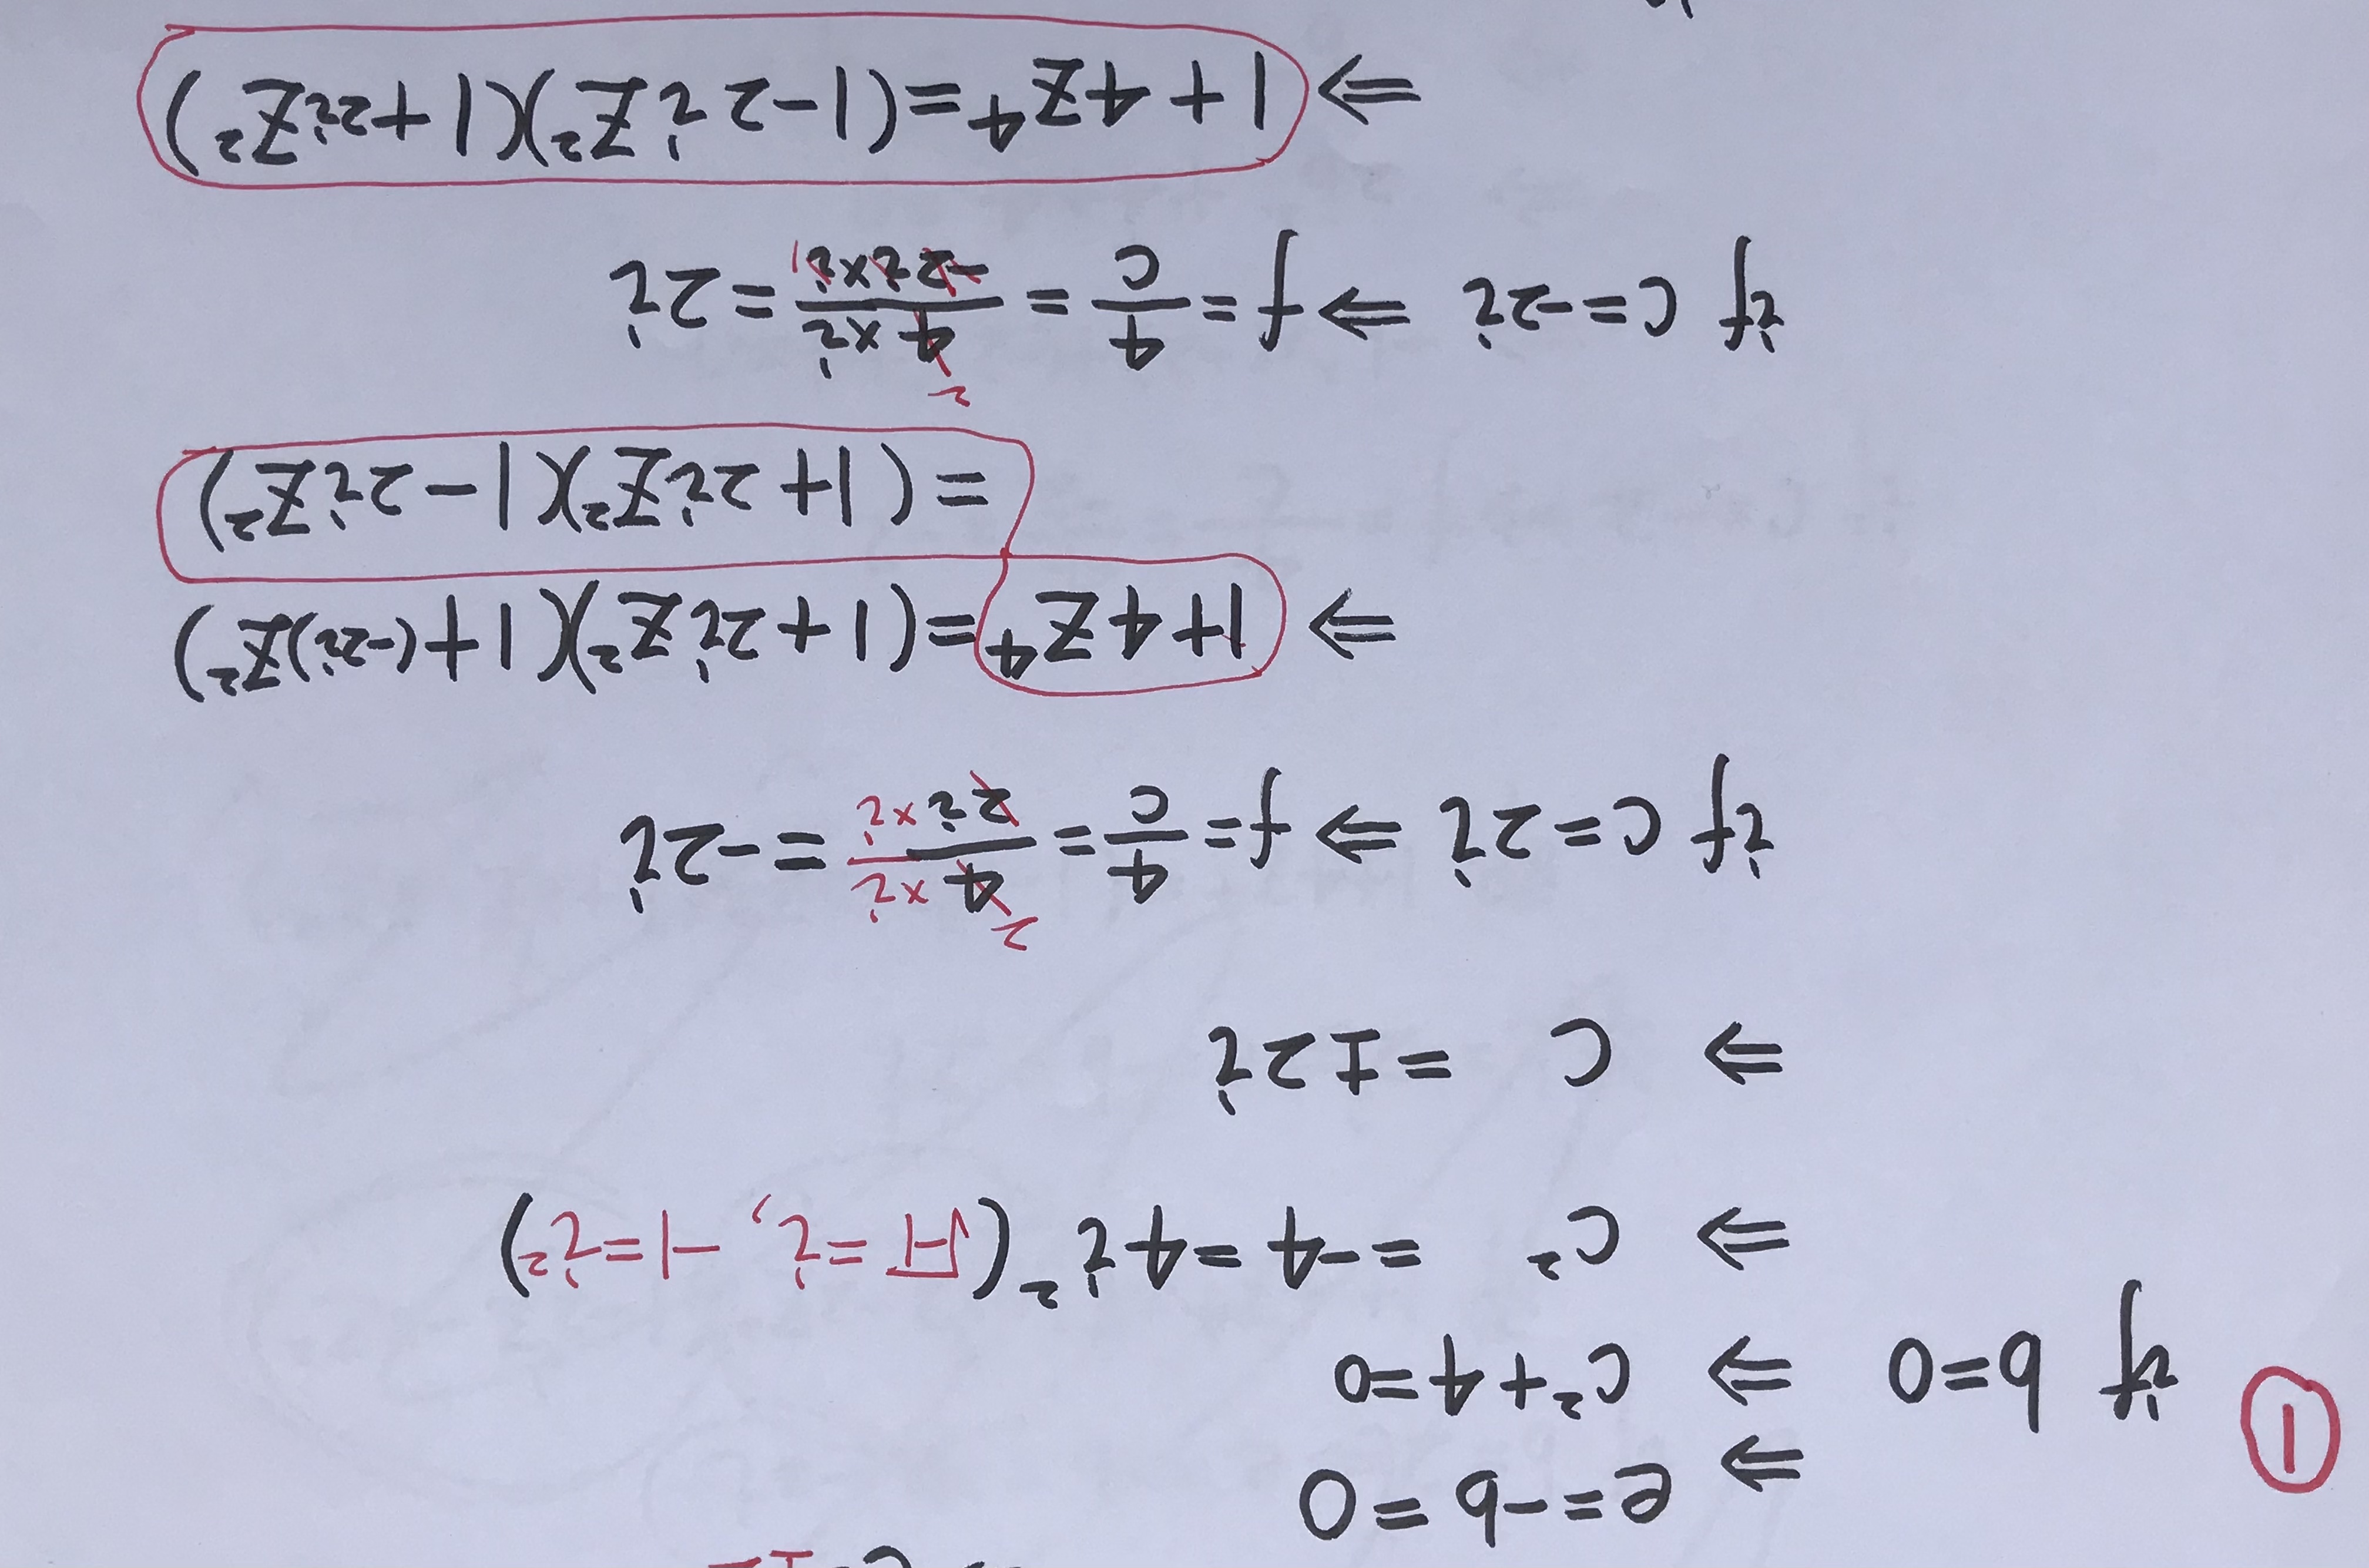 ⇒ e=-b=0
① if b=0 ⇒ c²+4=0
⇒ c² =-4=4i² (√-1=i, -1=i²)
⇒ c =±2i
if c=2i ⇒ f=4/c=4×i/2i×i=-2i
2
⇒ 1+4Z⁴=(1+2iZ²)(1+(-2i)Z²)
=(1+2iZ²)(1-2iZ²)
if c=-2i ⇒ f=4/c=4×i/-2i×i=2i
2 1
⇒ 1+4Z⁴=(1-2iZ²)(1+2iZ²)